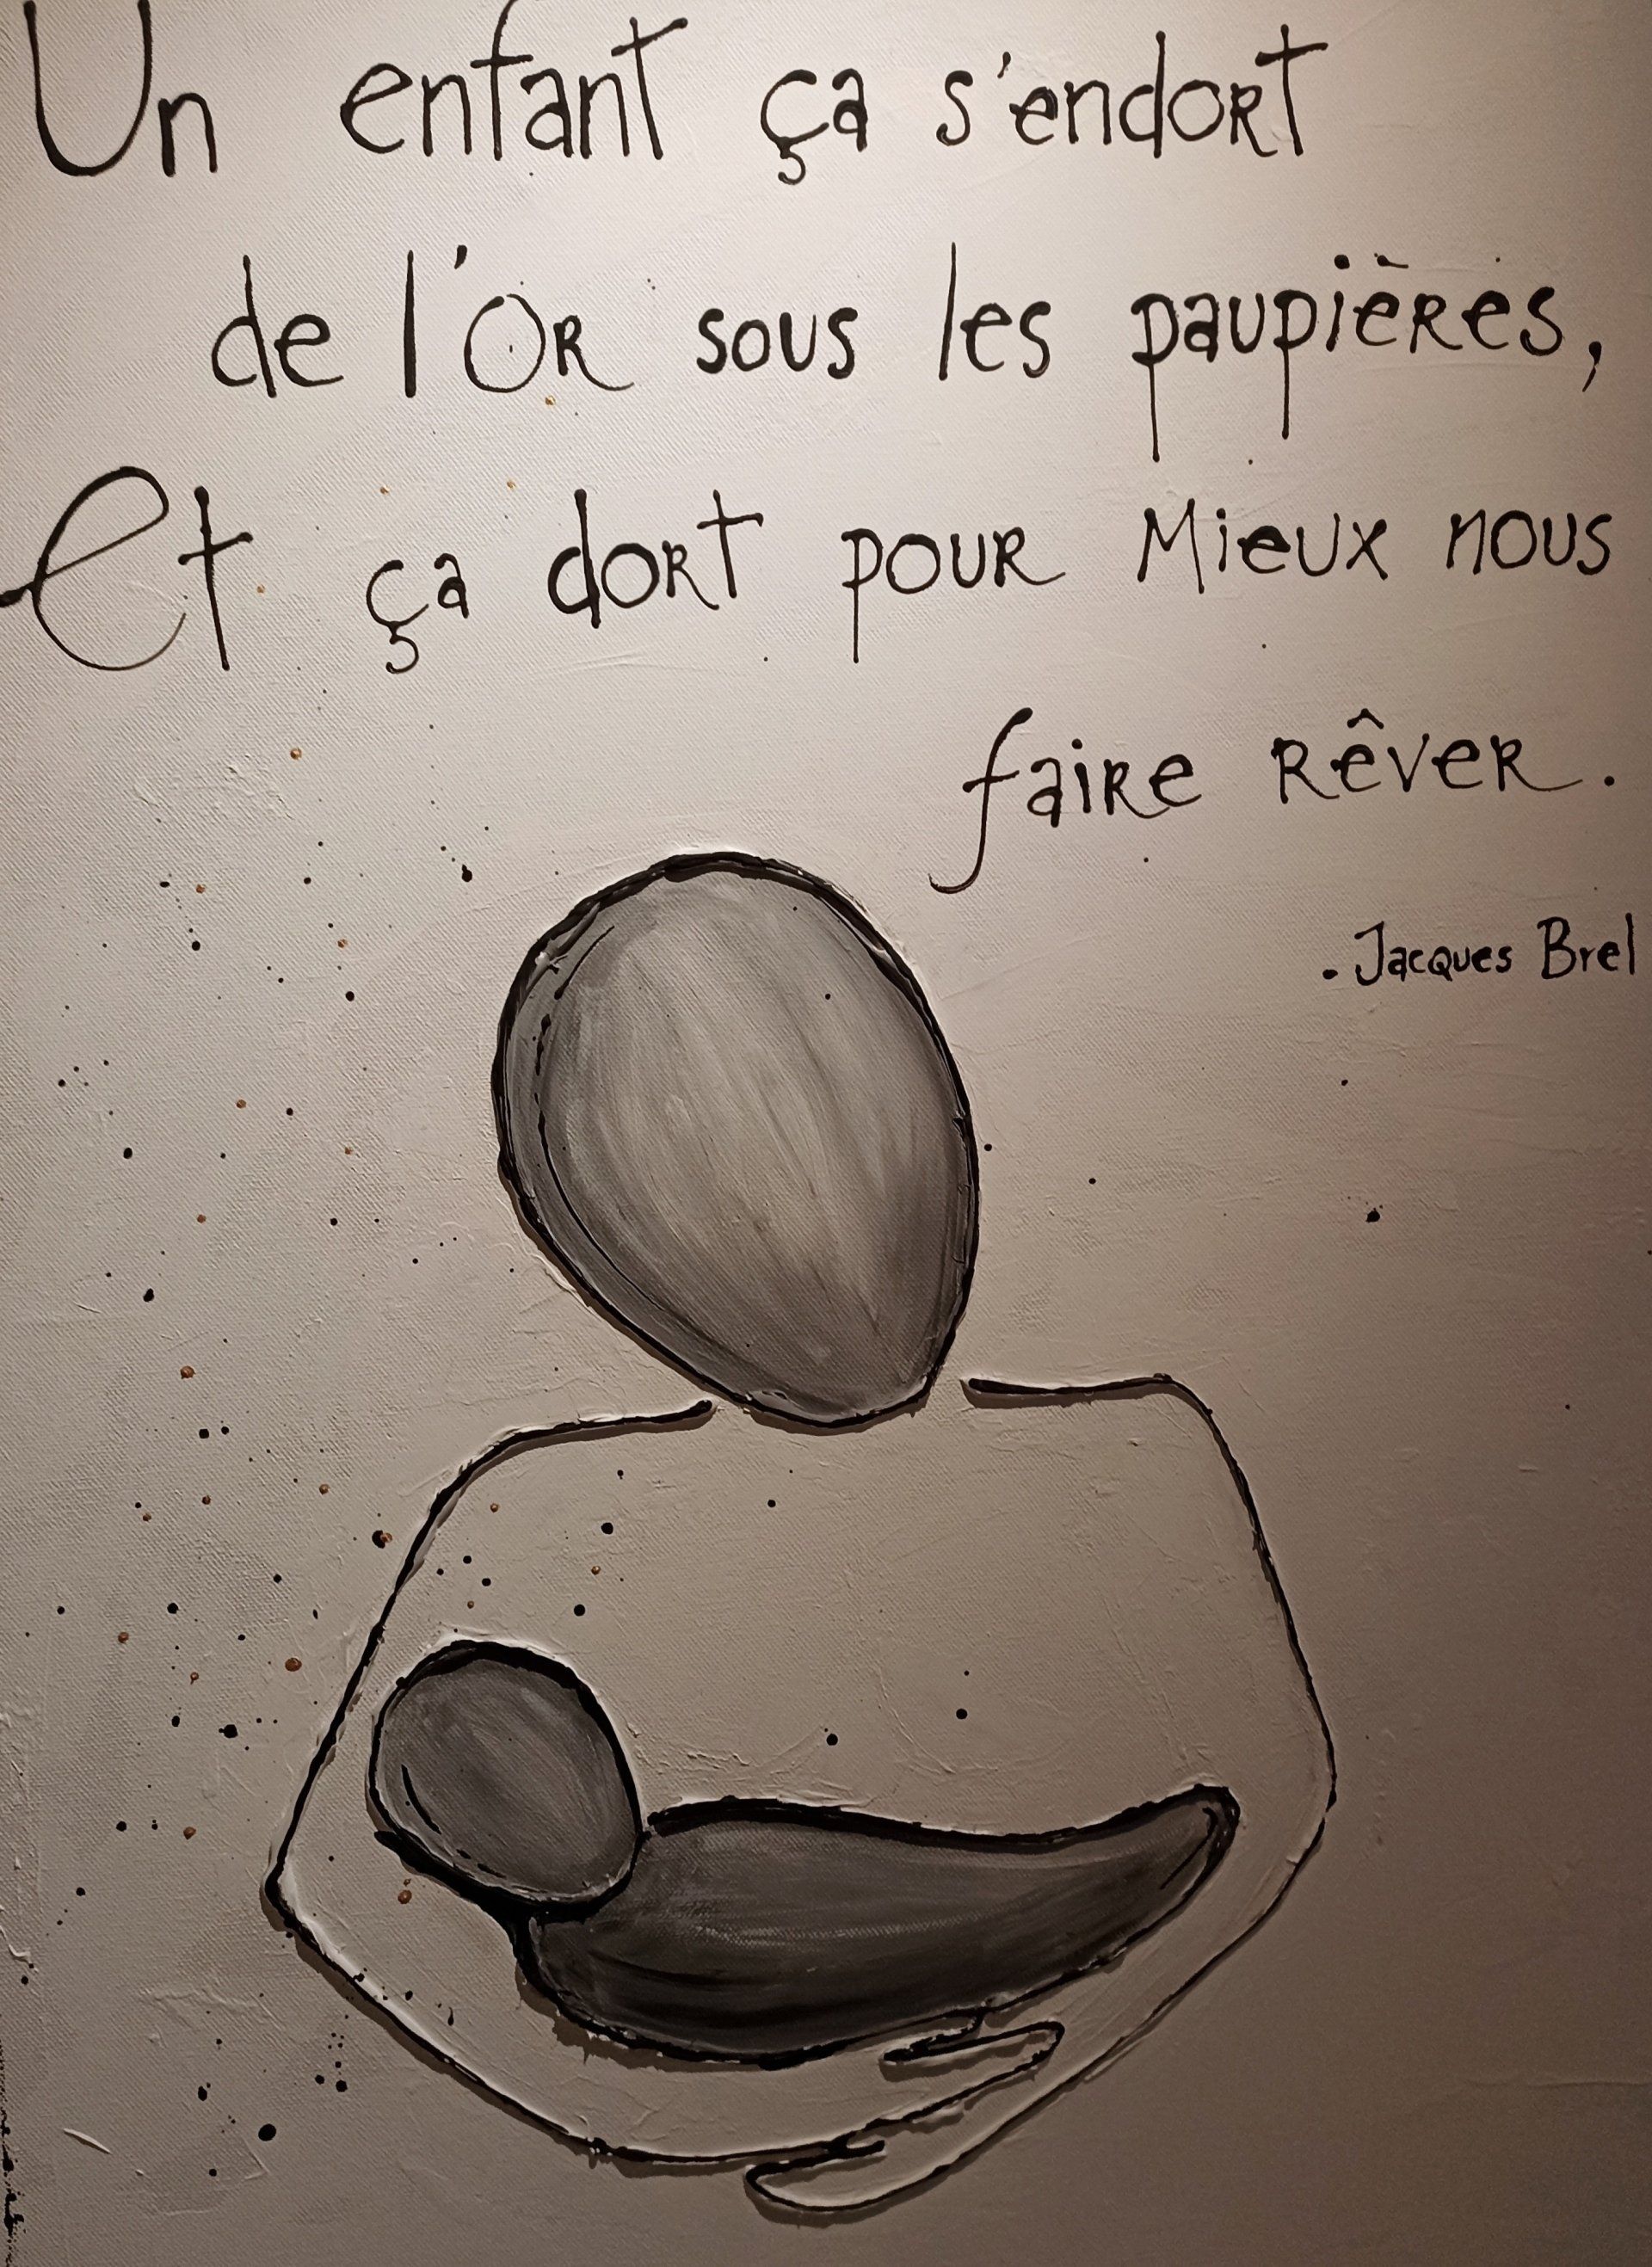 Un enfant ça s'endort
de l'Or sous les paupières,
Et ça dort pour Mieux nous
faire rêver.
. Jacques Brel